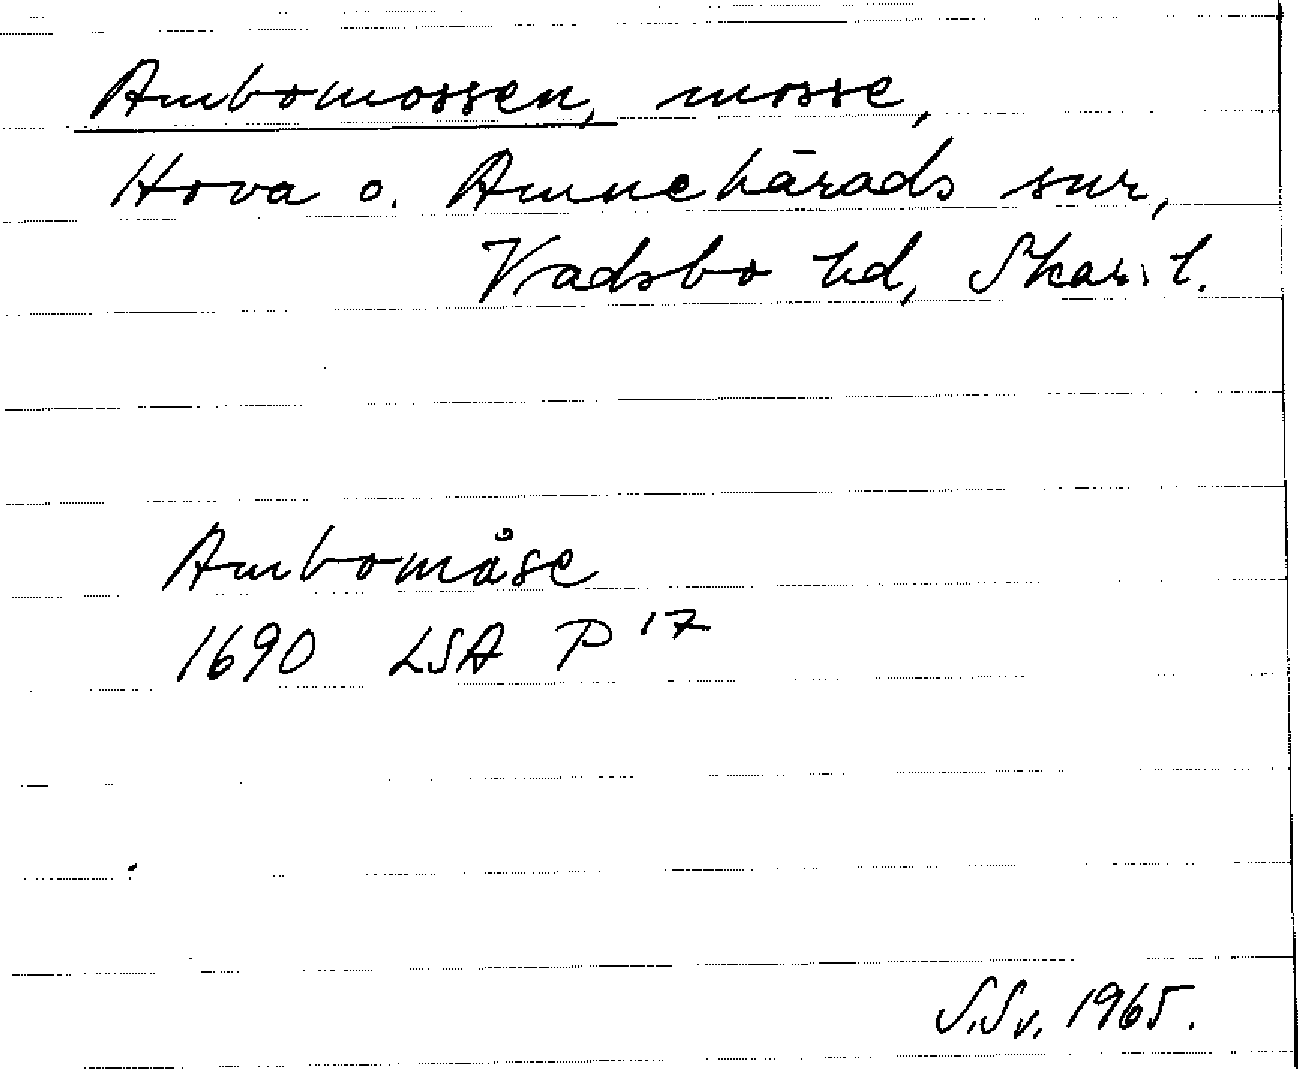 Ambomossen, mosse,
Hova o. Amnehärads snr,
Vadsbo hd, Skar. l.
Ambomåse
1690 LSA P 17
S.Sv. 1965.